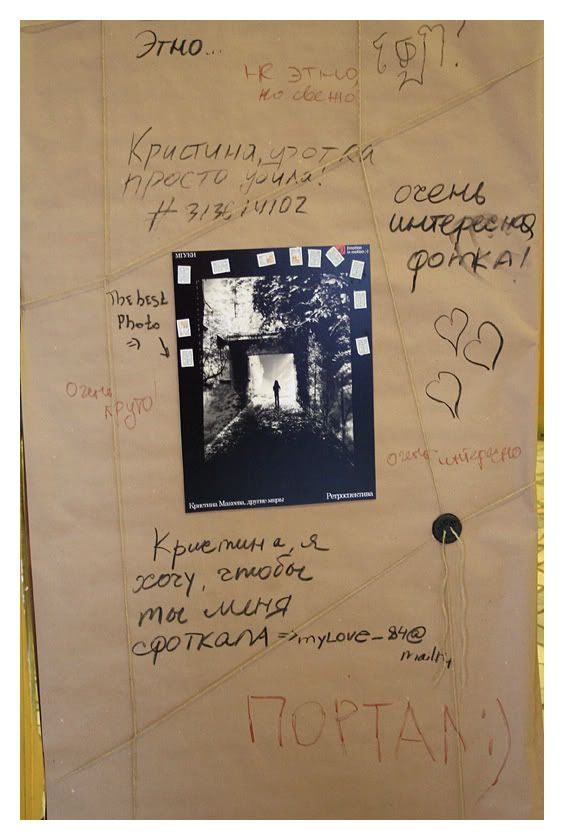 Этно...
не этно,
но свежо
Кристина, уготка
просто убила!
# 313614102
очень
интересная
фотка!
МГУКИ
The best
Photo
=)
Очень
круто!
очень интересно
Кристина Макеева, другие миры
Ретроспектива
Кристина, я
хочу, чтобы
ты меня
сфоткала => myLove_84@
mail.ru
ПОРТАЛ ;)